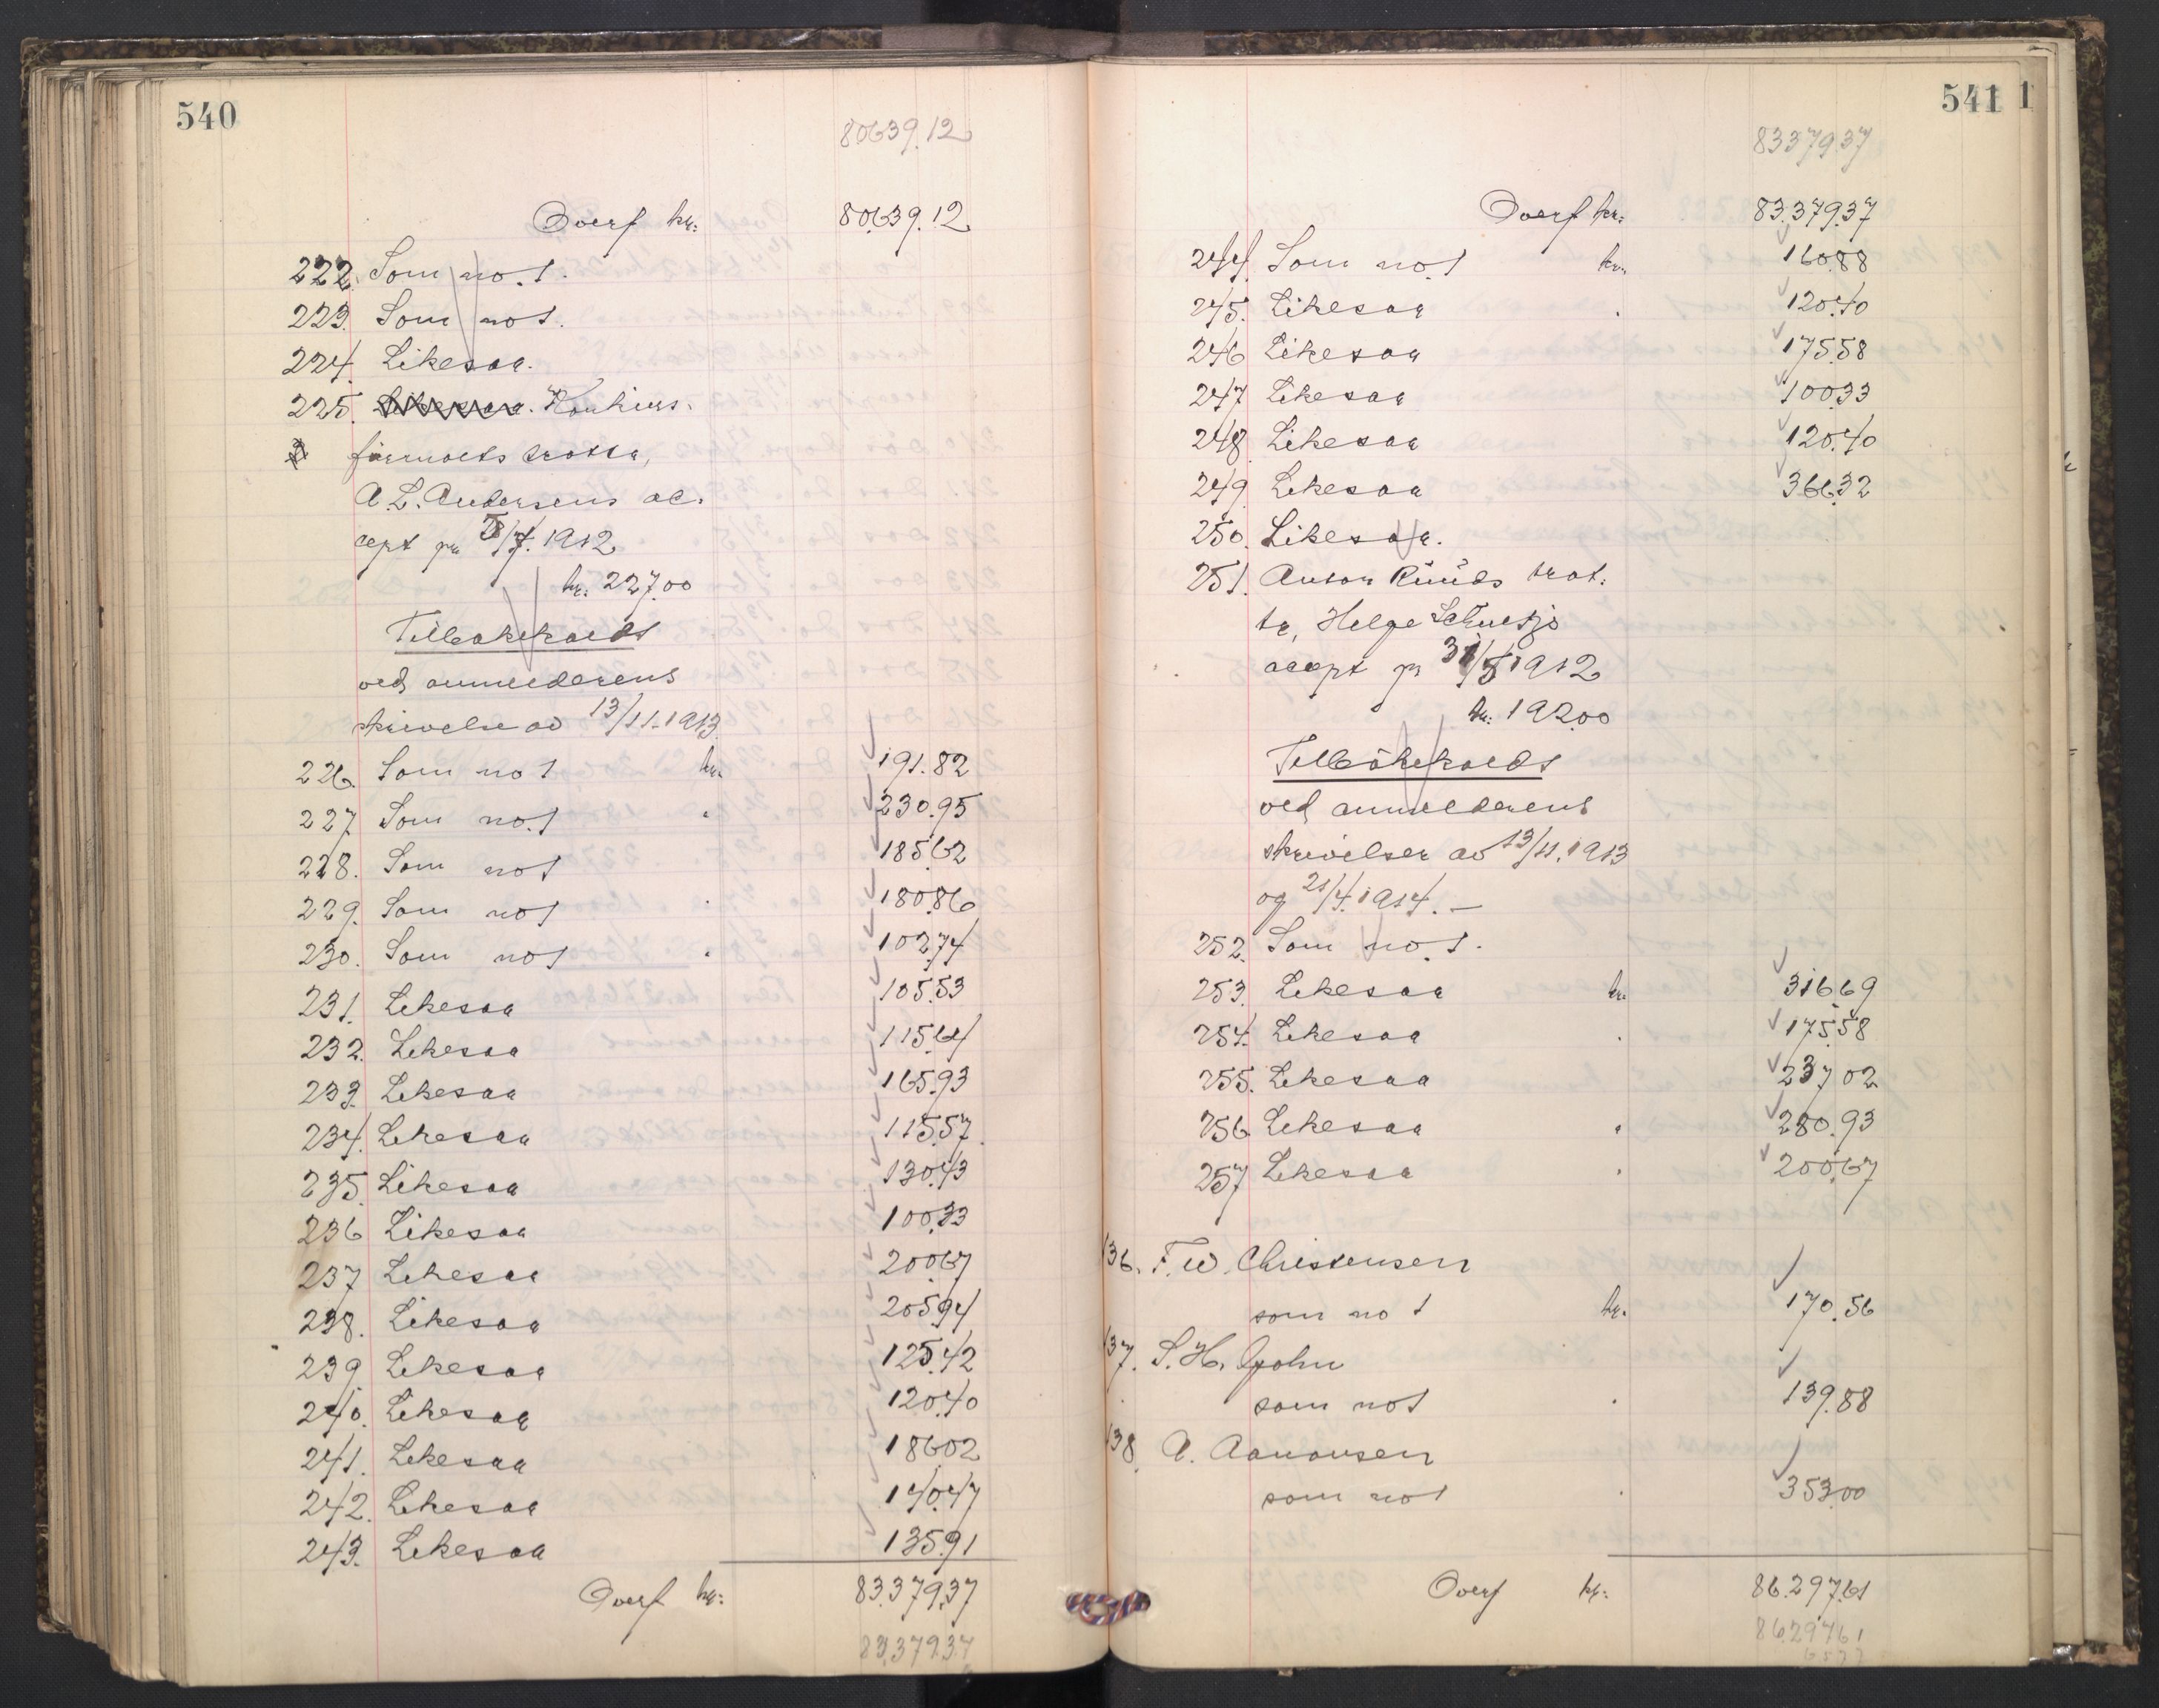 540
80639.12
Overf kr: 80.639.12
222. Som no. 1.
223. Som no 1.
224. Likesaa.
225. Konkurs.
A. L. Andersens ac.
cept pr 1912
kr. 227.00
Tilbakekaldt
ved anmelderens
skrivelse av 13/11-1913
226. Som no 1 kr. 191.82
227 Som no. 1 " 230.95
228. Som no 1 185.62
229. Som no 1 " 180.86
230. Som no 1 " 102.74
231. Likesaa 105.53
232. Likesaa 115.64
233. Likesaa 165.93
234. Likesaa 115.57
235. Likesaa 130.43
236 Likesaa 100.33
237 Likesaa 200.67
238. Likesaa 205.94
239. Likesaa 125.42
240. Likesaa 120.40
241. Likesaa 186.02
242. Likesaa 140.47
243. Likesaa 135.91
Overf kr: 83.379.37
83.379.37
541 1
83379.37
Overf kr: 83.379.37
244. Som no. 1 kr. 160.88
245. Likesaa " 120.40
246 Likesaa 175.58
247 Likesaa 100.33
248. Likesaa 120.40
249. Likesaa 366.32
250. Likesaa.
251. Anton Ruuds trat.
ta, Helge
accept pr 31/5 1912
kr: 192.00
Tilbakekaldt
ved anmelderens
skrivelser av 13/11. 1913
og 21/4. 1914. —
252. Som no. 1.
253. Likesaa kr. 316.69
254. Likesaa " 175.58
255. Likesaa 237.02
256. Likesaa " 280.93
257 Likesaa " 200.67
136. F. W. Christensen
som no 1 kr. 170.56
137. S. H. Gjohn
som no 1 " 139.88
138 A. Aanonsen
som no 1 " 353.00
Overf kr: 86.297.61
86.297.61